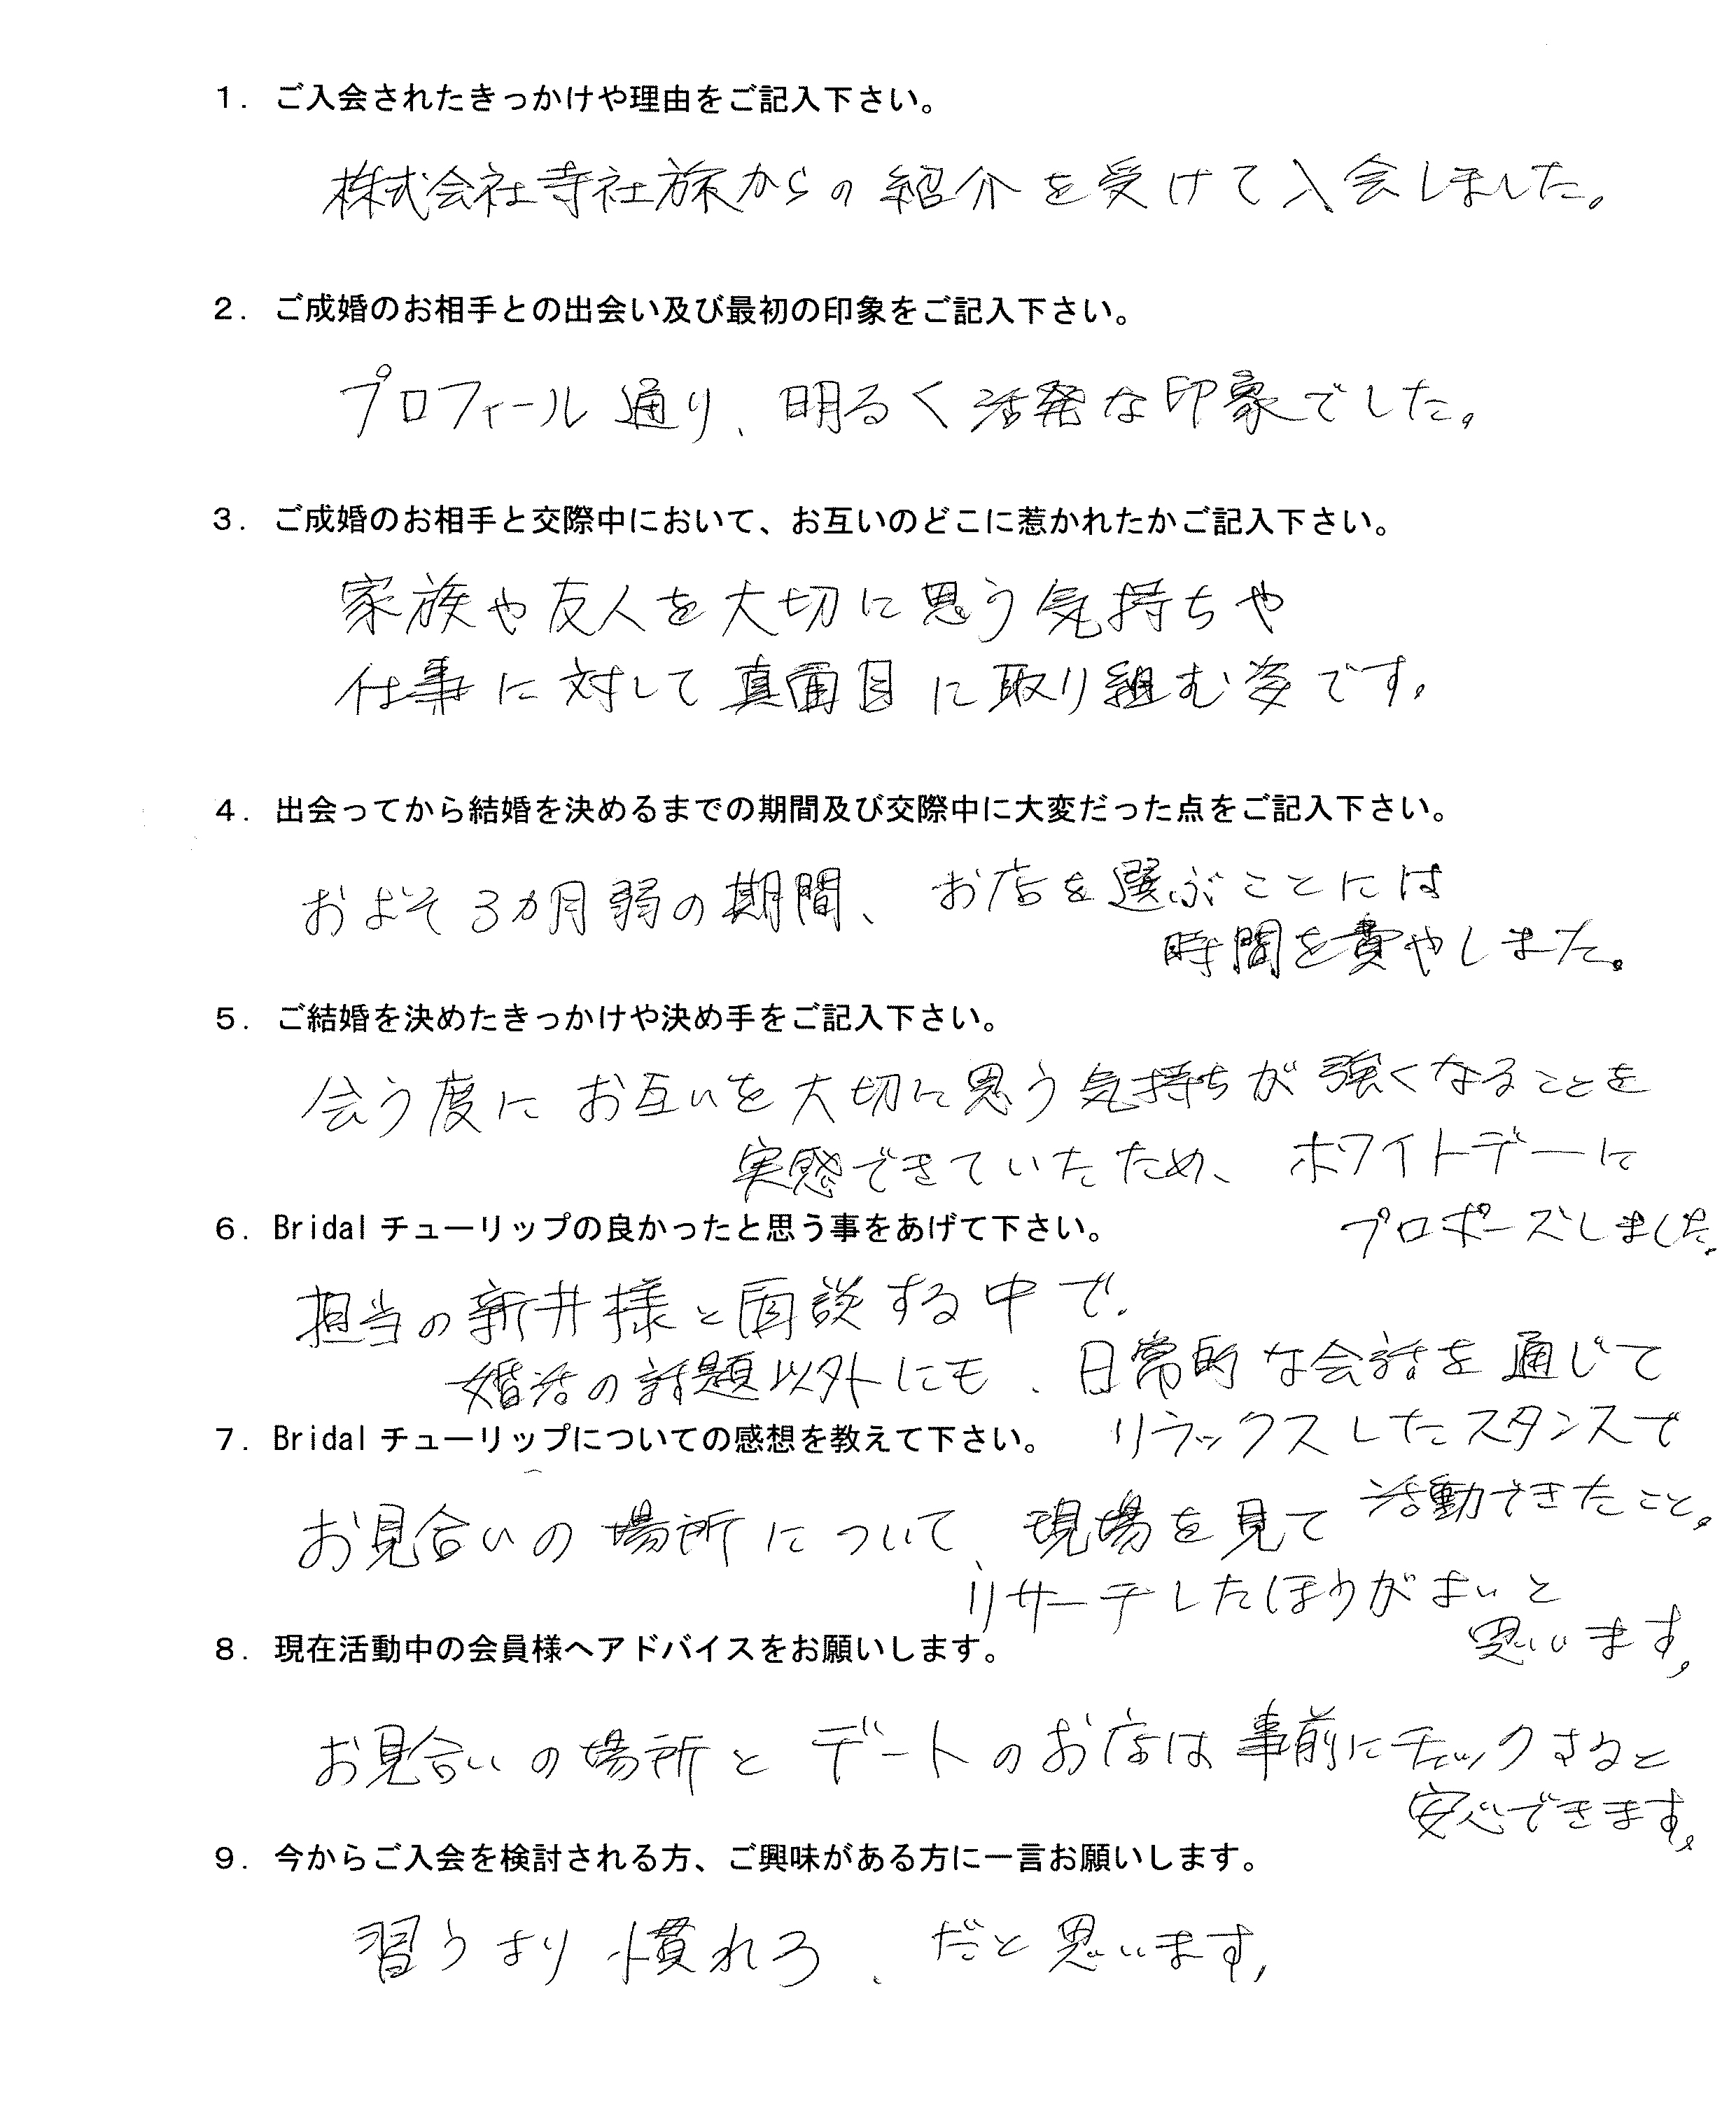 1. ご入会されたきっかけや理由をご記入下さい。
株式会社寺社旅からの紹介を受けて入会しました。
2. ご成婚のお相手との出会い及び最初の印象をご記入下さい。
プロフィール通り、明るく活発な印象でした。
3. ご成婚のお相手と交際中において、お互いのどこに惹かれたかご記入下さい。
家族や友人を大切に思う気持ちや
仕事に対して真面目に取り組む姿です。
4. 出会ってから結婚を決めるまでの期間及び交際中に大変だった点をご記入下さい。
およそ3カ月弱の期間、お店を選ぶことには
時間を費やしました。
5. ご結婚を決めたきっかけや決め手をご記入下さい。
会う度にお互いを大切に思う気持ちが強くなることを
実感できていたため、ホワイトデーに
プロポーズしました。
6. Bridalチューリップの良かったと思う事をあげて下さい。
担当の新井様と面談する中で、
婚活の話題以外にも、日常的な会話を通じて
リラックスしたスタンスで
活動できたこと。
7. Bridalチューリップについての感想を教えて下さい。
お見合いの場所について、現場を見て
リサーチしたほうがよいと
思います。
8. 現在活動中の会員様へアドバイスをお願いします。
お見合いの場所とデートのお店は事前にチェックすると
安心できます。
9. 今からご入会を検討される方、ご興味がある方に一言お願いします。
習うより慣れろ、だと思います。